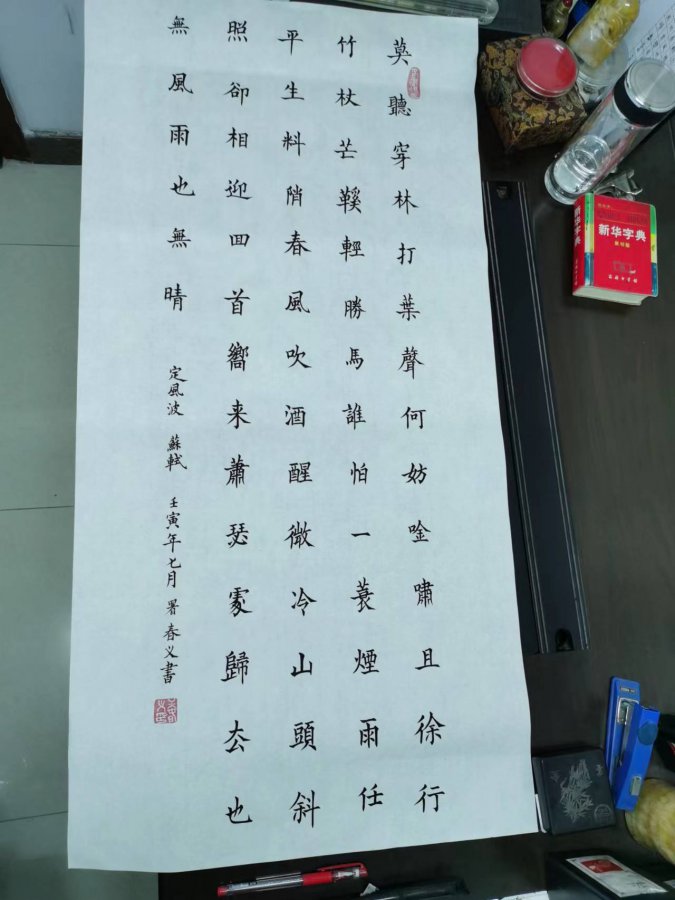 莫聽穿林打葉聲何妨唫嘯且徐行
竹杖芒鞵輕勝馬誰怕一蓑煙雨任
平生料陗春風吹酒醒微冷山頭斜
照卻相迎回首嚮来蕭瑟處歸厺也
無風雨也無晴 定風波 蘇軾 壬寅年七月 署春义書
新华字典